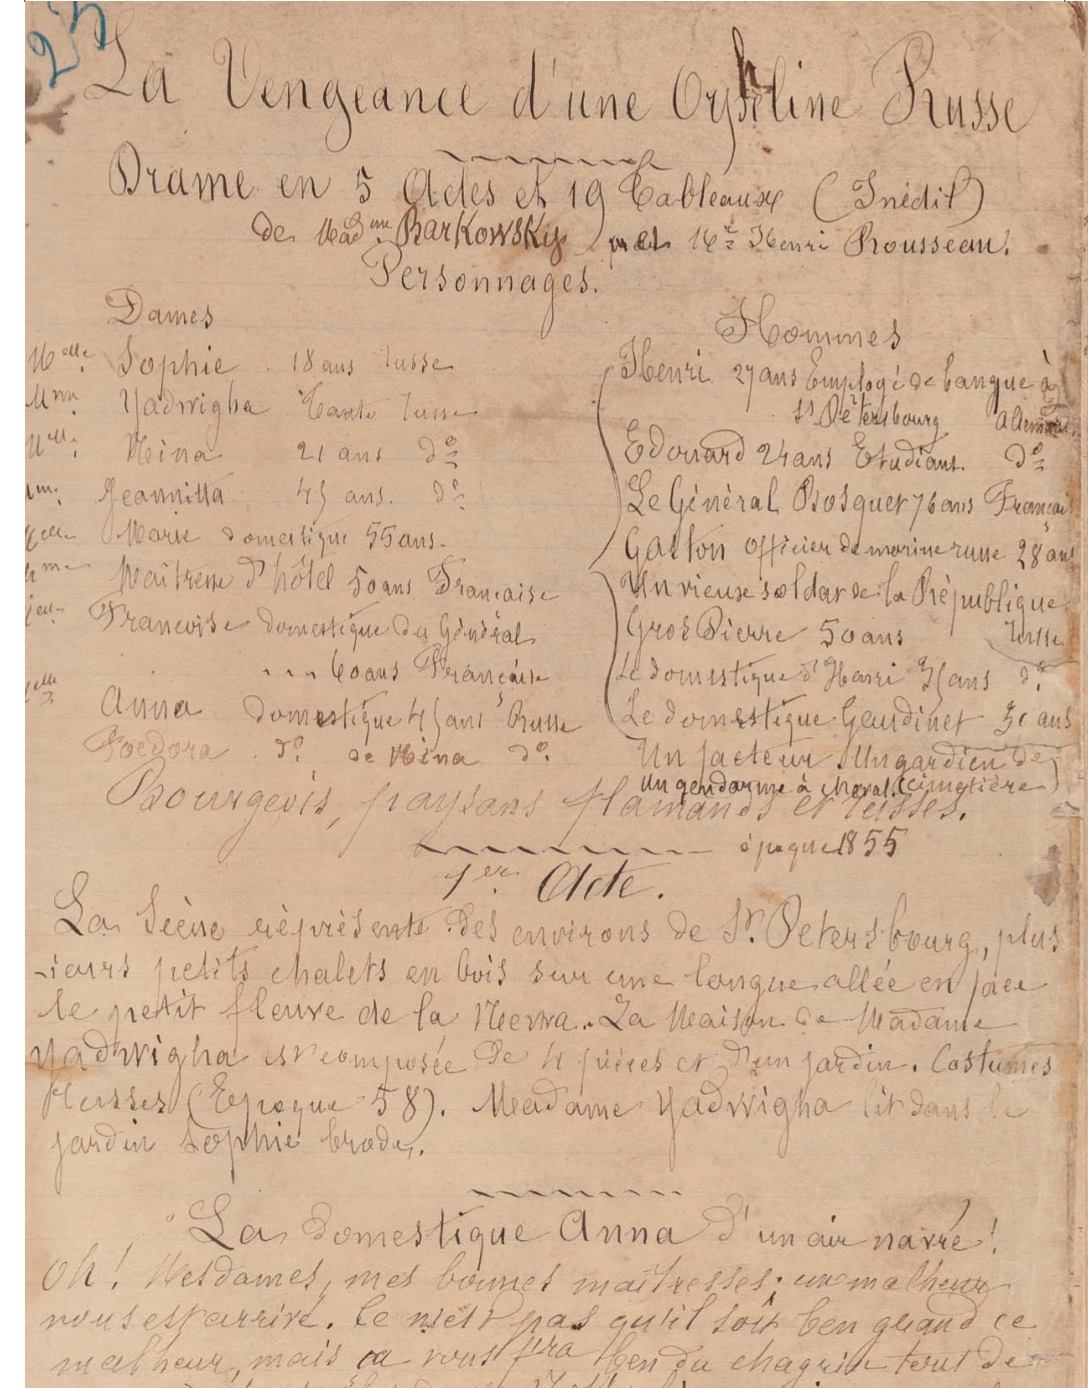 23
La Vengeance d'une Orpheline Russe
Drame en 5 Actes et 19 Tableaux (Inédit)
de Madme Barkowsky et Mr Henri Rousseau.
Personnages.
Dames
Melle Sophie 18 ans russe
Mme Yadwigha Tante russe
Melle Nina 21 ans do
Mme Jeannitta 45 ans. do
Melle Marie domestique 55 ans.
Mme Maîtresse d'hôtel 50 ans Française
Melle Francoise domestique du Général
... 60 ans Française
Melle Anna domestique 45 ans Russe
Foedora do de Nina do
Hommes
Henri 27 ans Employé de banque à
St Pétersbourg Allemand
Edouard 24 ans Etudiant. do
Le Général Bosquet 76 ans Français
Gaston officier de marine russe 28 ans
Un vieux soldat de la République
Gros Pierre 50 ans russe
Le domestique d'Henri 35 ans do
Le domestique Gaudinet 30 ans
Un facteur. Un gardien de
Un gendarme à cheval. (cimetière)
Bourgeois, paysans flamands et russes.
époque 1855
1er Acte.
La Scène réprésente des environs de St. Petersbourg, plus
-ieurs petits chalets en bois sur une longue allée en face
le petit fleuve de la Newa. La Maison de Madame
Yadwigha est composée de 4 pièces et d'un jardin. Costumes
Russes (Epoque 58). Madame Yadwigha lit dans le
jardin Sophie brode.
La domestique Anna d'un air navré!
Oh! Mesdames, mes bonnes maîtresses; un malheur
nous est arrivé. Ce n'est pas qu'il soit ben grand ce
malheur, mais ca vous f'ra ben du chagrin tout de